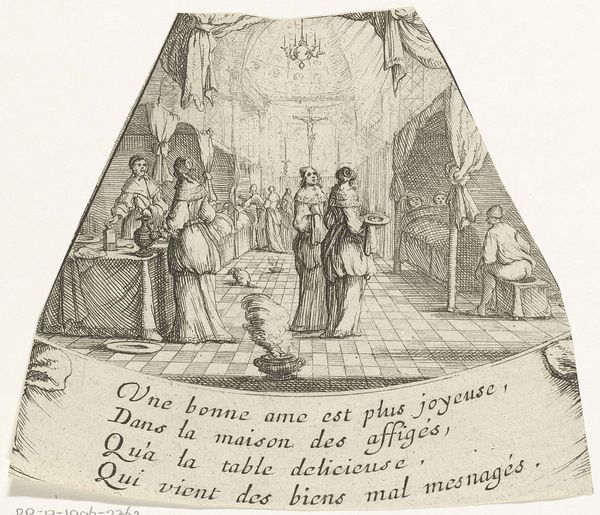 Vne bonne ame est plus joyeuse,
Dans la maison des affigés,
Qu'a la table delicieuse,
Qui vient des biens mal mesnagés.